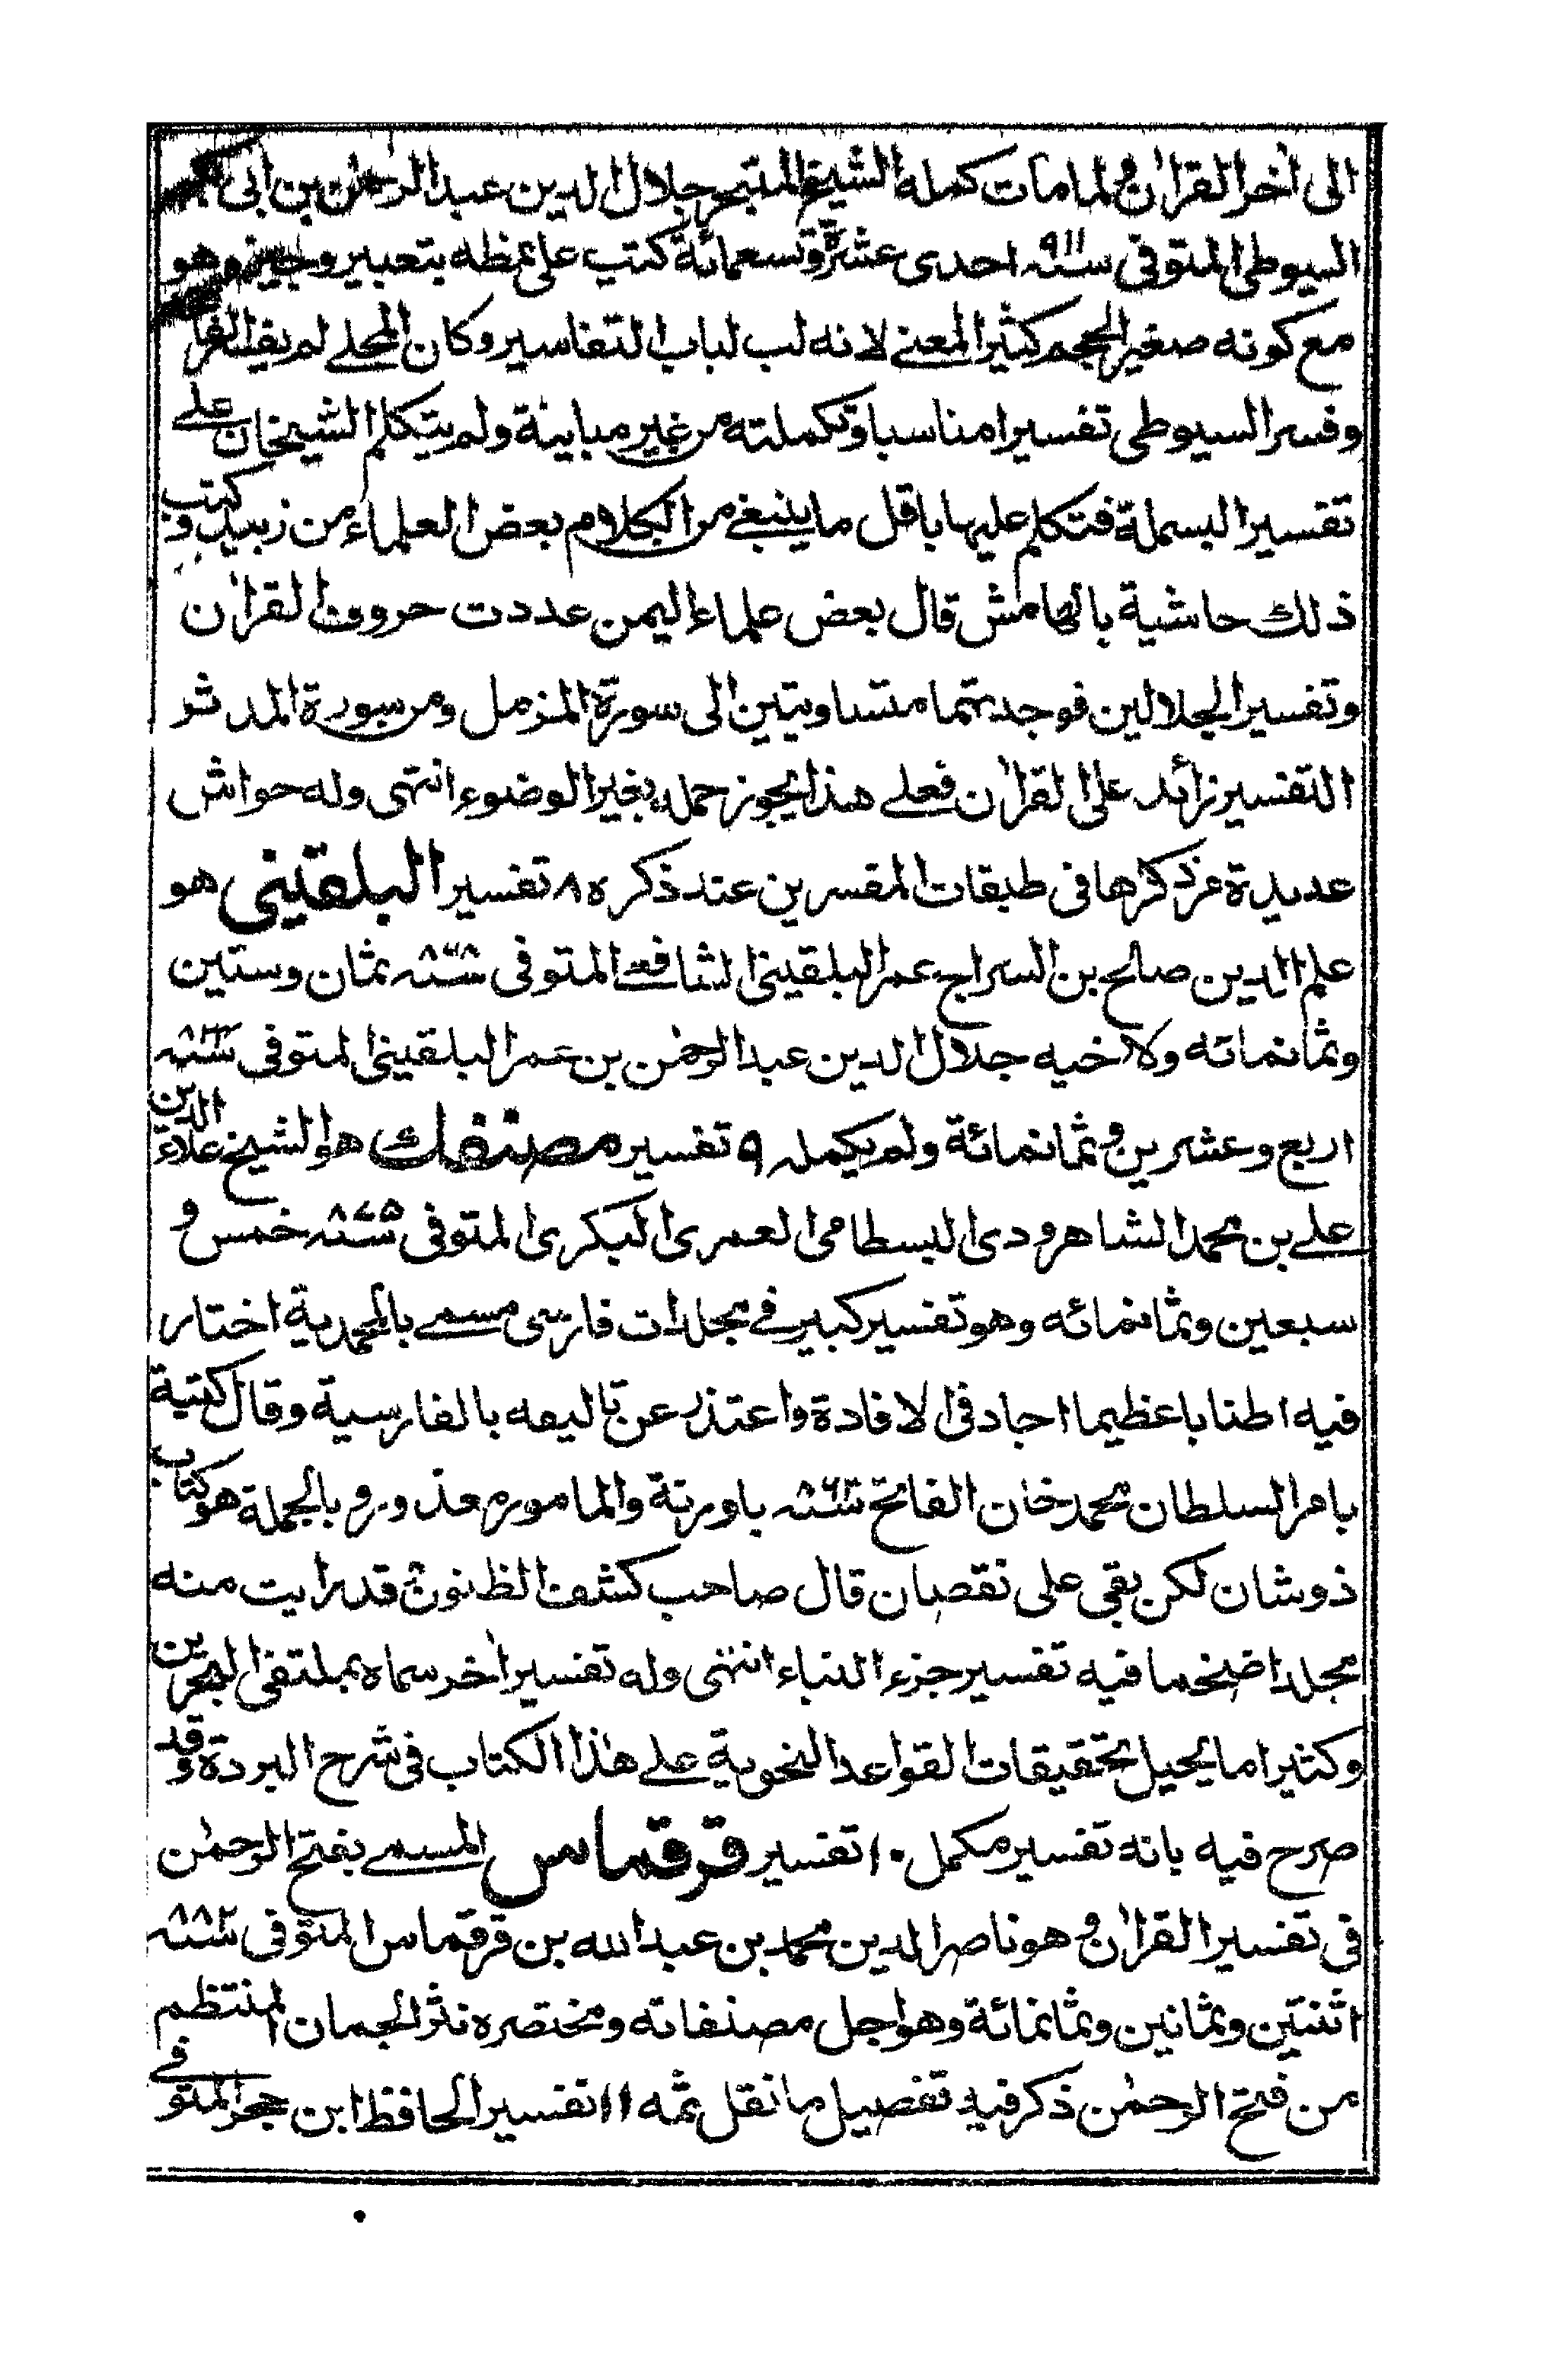 الى اٰخر القراٰن ولما مات كمله الشيخ المتبحر جلال الدين عبد الرحمٰن بن ابى بكر
السيوطى المتوفى سنة ٩١١ احدى عشرة وتسعمائة كتب على نمطه بتعبير وجيز وهو
مع كونه صغير الحجم كثير المعنے لانه لب لباب التفاسير وكان المحلے لم يفسر الفا
وفسر السيوطى تفسيرا مناسبا وتكملته من غير مباينة ولم يتكلم الشيخان علے
تفسير البسملة فتكلم عليها باقل ما ينبغے من الكلام بعض العلماء من زبيد وكتب
ذلك حاشية بالهامش قال بعض علماء اليمن عددت حروف القراٰن
وتفسير الجلالين فوجدتهما متساويتين الى سورة المزمل ومن سورة المدثر
التفسير زائد على القراٰن فعلے هذا يجوز حمله بغير الوضوء انتهى وله حواش
عديدة مر ذكرها فى طبقات المفسرين عند ذكره ٨ تفسير البلقينى هو
علم الدين صالح بن السراج عمر البلقينى الشافعے المتوفى سنة ٨٦٨ ثمان وستين
وثمانمائه ولاخيه جلال الدين عبد الرحمٰن بن عمر البلقينى المتوفى سنة ٨٢٤
اربع وعشرين وثمانمائة ولم يكمله ٩ تفسير مصنفك هو الشيخ علاء الدين
علے بن محمد الشاهرودى البسطامى العمرى البكرى المتوفى سنة ٨٧٥ خمس و
سبعين وثمانمائه وهو تفسير كبير فے مجلدات فارسى مسمے بالمحمدية اختار
فيه اطنابا عظيما اجاد فى الافادة واعتذر عن تاليفه بالفارسية وقال كتبته
بامر السلطان محمد خان الفاتح سنة ٨٦٣ باورنة والمامور معذور وبالجملة هو كتاب
ذوشان لكن بقى على نقصان قال صاحب كشف الظنون قد رايت منه
مجلدا ضخما فيه تفسير جزء النباء انتهى وله تفسير اٰخر سماه بملتقى البحرين
وكثيرا ما يحيل تحقيقات القواعد النحوية علے هٰذا الكتاب فى شرح البردة وقد
صرح فيه بانه تفسير مكمل ١٠ تفسير قرقماس المسمے بفتح الرحمٰن
فى تفسير القراٰن وهو ناصر الدين محمد بن عبد الله بن قرقماس المتوفى سنة ٨٨٢
اثنتين وثمانين وثمانمائة وهو اجل مصنفاته ومختصره نثر الجمان المنتظم
من فتح الرحمٰن ذكر فيه تفصيل ما نقل ثمه ١١ تفسير الحافظ ابن حجر المتوفے